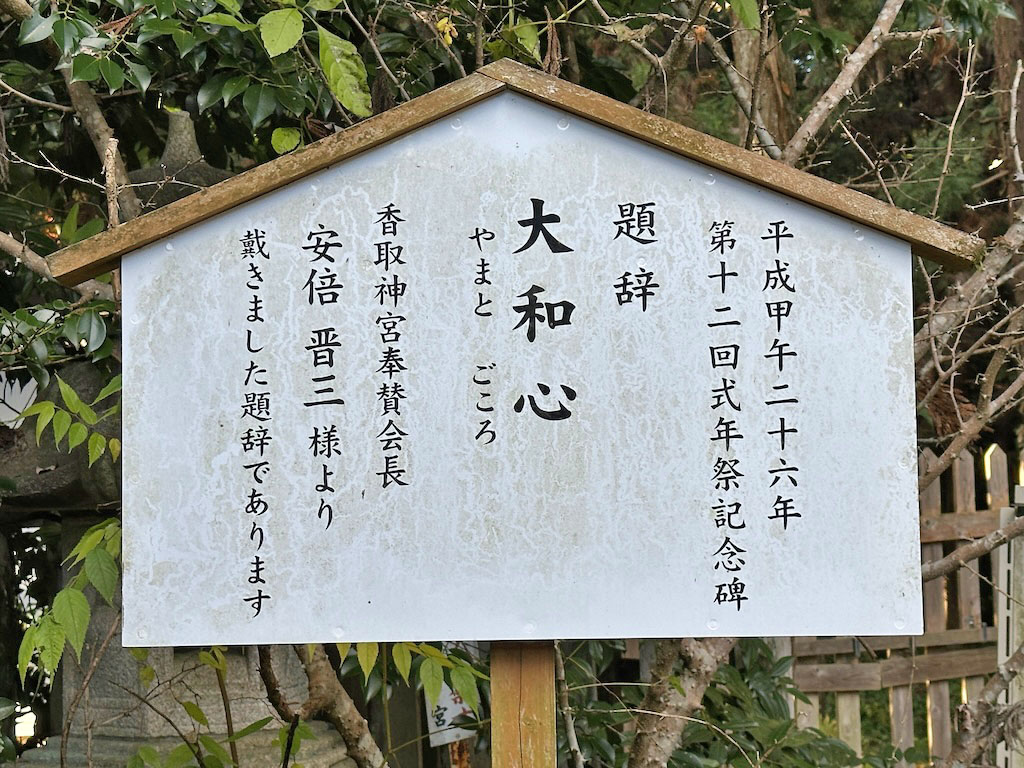 平成甲午二十六年
第十二回式年祭記念碑
題辞
大和心
やまと ごころ
香取神宮奉賛会長
安倍 晋三 様より
戴きました題辞であります
宮